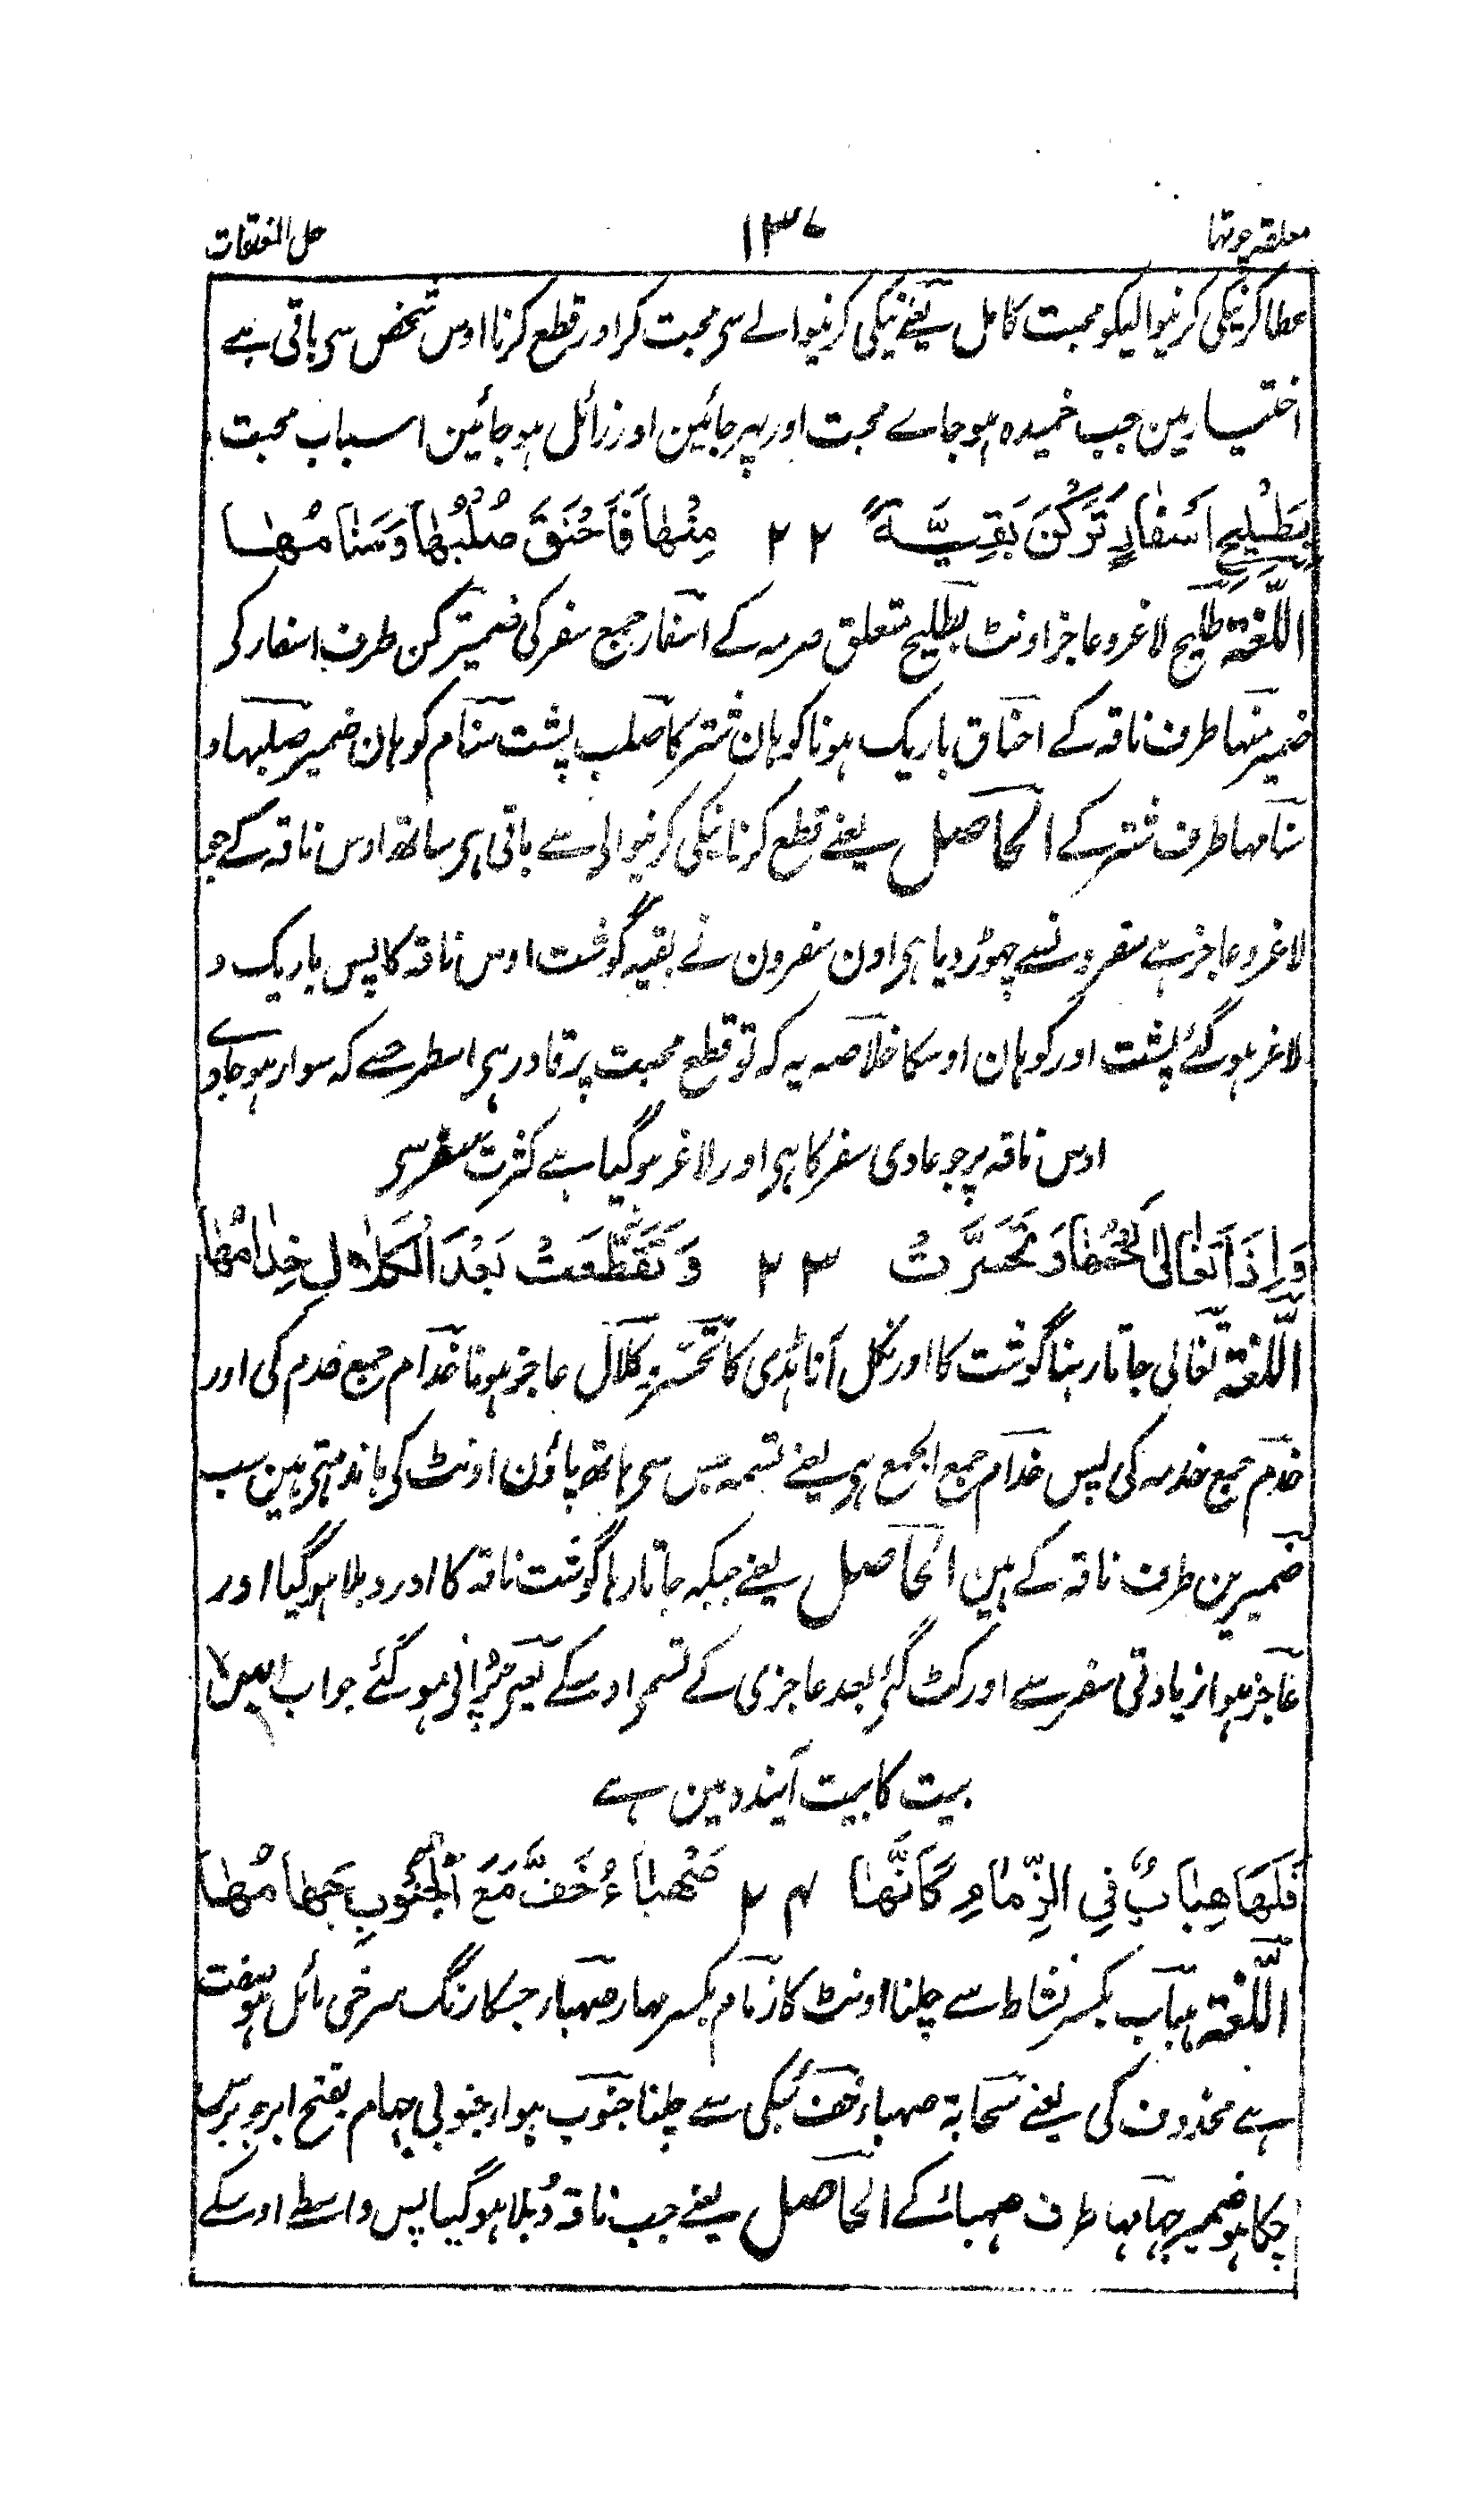 معلقہ چوتھا ۱۳۷ حل المغلقات
عطا کر نیکی کرنیوالیکو محبت کامل یعنے نیکی کرنیوالے سی محبت کر اور قطع کرنا اوس شخص سی باقی ہے
اختیار مین جب خمیدہ ہو جاے محبت اور پہر جائین اور زائل ہو جائین اسباب محبت
بِطَلِیْحِ اَسْفَارٍ تَرَكْنَ بَقِیَّةً ۲۲ مِنْهَا فَاَحْنَقَ صُلْبُهَا وَسَنَامُهَا
اللّغة طلیح لاغر و عاجز اونٹ بطلیح متعلق صرمہ کے اسفار جمع سفر کی ضمیر ترکن طرف اسفار کی
ضمیر منہا طرف ناقہ کے احناق باریک ہونا کوہان شتر کا صلب پشت سنام کوہان ضمیر صلبہا و
سنامہا طرف شتر کے الحاصل یعنے قطع کرنا نیکی کرنیوالی سے باقی ہی ساتھ اوس ناقہ کے جو
لاغر و عاجز ہے سفرونسے چھوڑ دیا ہی اون سفرون نے بقیہ گوشت اوس ناقہ کا پس باریک و
لاغر ہو گئے پشت اور کوہان اوسکا خلاصہ یہ کہ تو قطع محبت پر قادر ہی اسطرحسے کہ سوار ہو جاوے
اوس ناقہ پر جو عادی سفر کا ہی اور لاغر ہو گیا ہے کثرت سفر سی
وَاِذَا تَغَالٰی لَحْمُهَا وَتَحَسَّرَتْ ۲۳ وَتَقَطَّعَتْ بَعْدَ الْكَلَالِ خِدَامُهَا
اللّغة تغالی جاتا رہنا گوشت کا اور نکل آنا ہڈی کا تحسّر و کلال عاجز ہونا خدام جمع خدم کی اور
خدم جمع خدمہ کی پس خدام جمع الجمع ہی یعنے تسمہ جس سی ہاتھ پاؤن اونٹ کی باندہتی ہین سب
ضمیرین طرف ناقہ کے ہین الحاصل یعنے جبکہ جاتا رہا گوشت ناقہ کا اور دبلا ہو گیا اور
عاجز ہوا زیادتی سفر سے اور کٹ گئی بعد عاجزی کے تسمی اوسکے یعنی پرانی ہو گئے جواب اس
بیت کا بیت آیندہ مین ہے
فَلَهَا هِبَابٌ فِی الزِّمَامِ كَاَنَّهَا ۲۴ صَهْبَاءُ خَفَّ مَعَ الْجَنُوْبِ جَهَامُهَا
اللّغة ہباب بکسر نشاط سے چلنا اونٹ کا زمام بکسر مہار صہباء جسکا رنگ سرخی مائل ہو صفت
ہے محذوف کی یعنے سحابة صہباء خف سبکی سے چلنا جنوب ہواء جنوبی جہام بفتح ابر جو برس
چکا ہو ضمیر جہامہا طرف صہباء کے الحاصل یعنے جب ناقہ دُبلا ہو گیا پس واسطے اوسکے